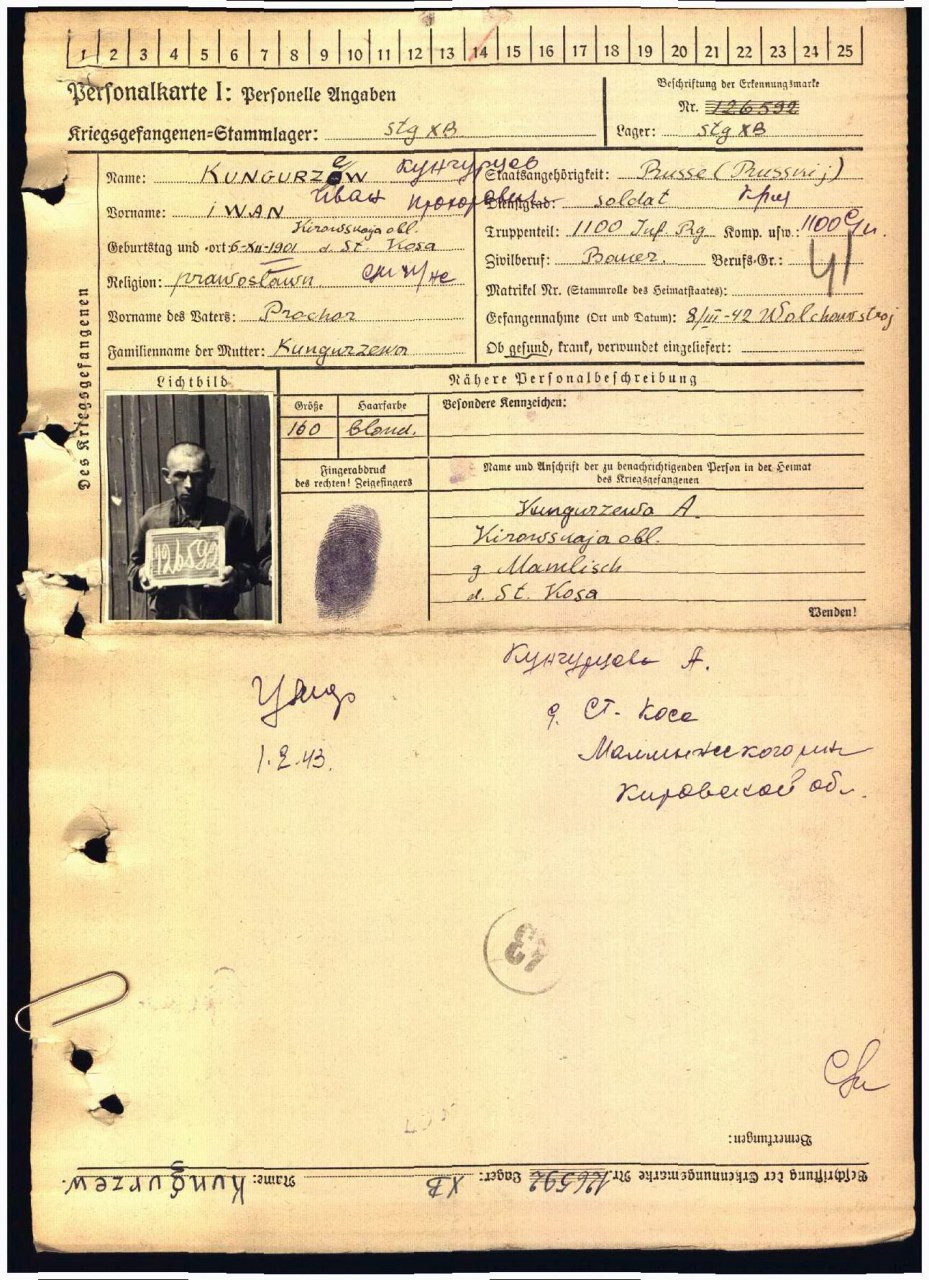 1 2 3 4 5 6 7 8 9 10 11 12 13 14 15 16 17 18 19 20 21 22 23 24 25
Personalkarte I: Personelle Angaben
Kriegsgefangenen-Stammlager: Stg XB
Beschriftung der Erkennungsmarke
Nr. 126592
Lager: Stg XB
Des Kriegsgefangenen
Name: KUNGURZEW Кунгурцев
Vorname: IWAN Иван Прохорович
Kirowskaja obl.
Geburtstag und -ort: 6-XII-1901 d. St. Kosa
Religion: prawosławn
Vorname des Vaters: Prochor
Familienname der Mutter: Kungurzewa
Staatsangehörigkeit: Russe (Russkij)
Dienstgrad: soldat
Truppenteil: 1100 Inf. Rg Komp. usw.: 1100
Zivilberuf: Bauer. Berufs-Gr.: 41
Matrikel Nr. (Stammrolle des Heimatstaates):
Gefangennahme (Ort und Datum): 8/III-42 Wolchowstroj
Ob gesund, krank, verwundet eingeliefert:
Lichtbild
126592
Nähere Personalbeschreibung
Größe Haarfarbe
160 blond.
Besondere Kennzeichen:
Fingerabdruck
des rechten! Zeigefingers
Name und Anschrift der zu benachrichtigenden Person in der Heimat
des Kriegsgefangenen
Kungurzewa A.
Kirowskaja obl.
g Mamlisch
d. St. Kosa
Wenden!
Кунгурцева А.
д. Ст. Коса
Малмыжского р-на
Кировской обл.
1.2.43.
43
Bemerkungen:
Beschriftung der Erkennungsmarke Nr. 126592 Lager: XB Name: Kungurzew.